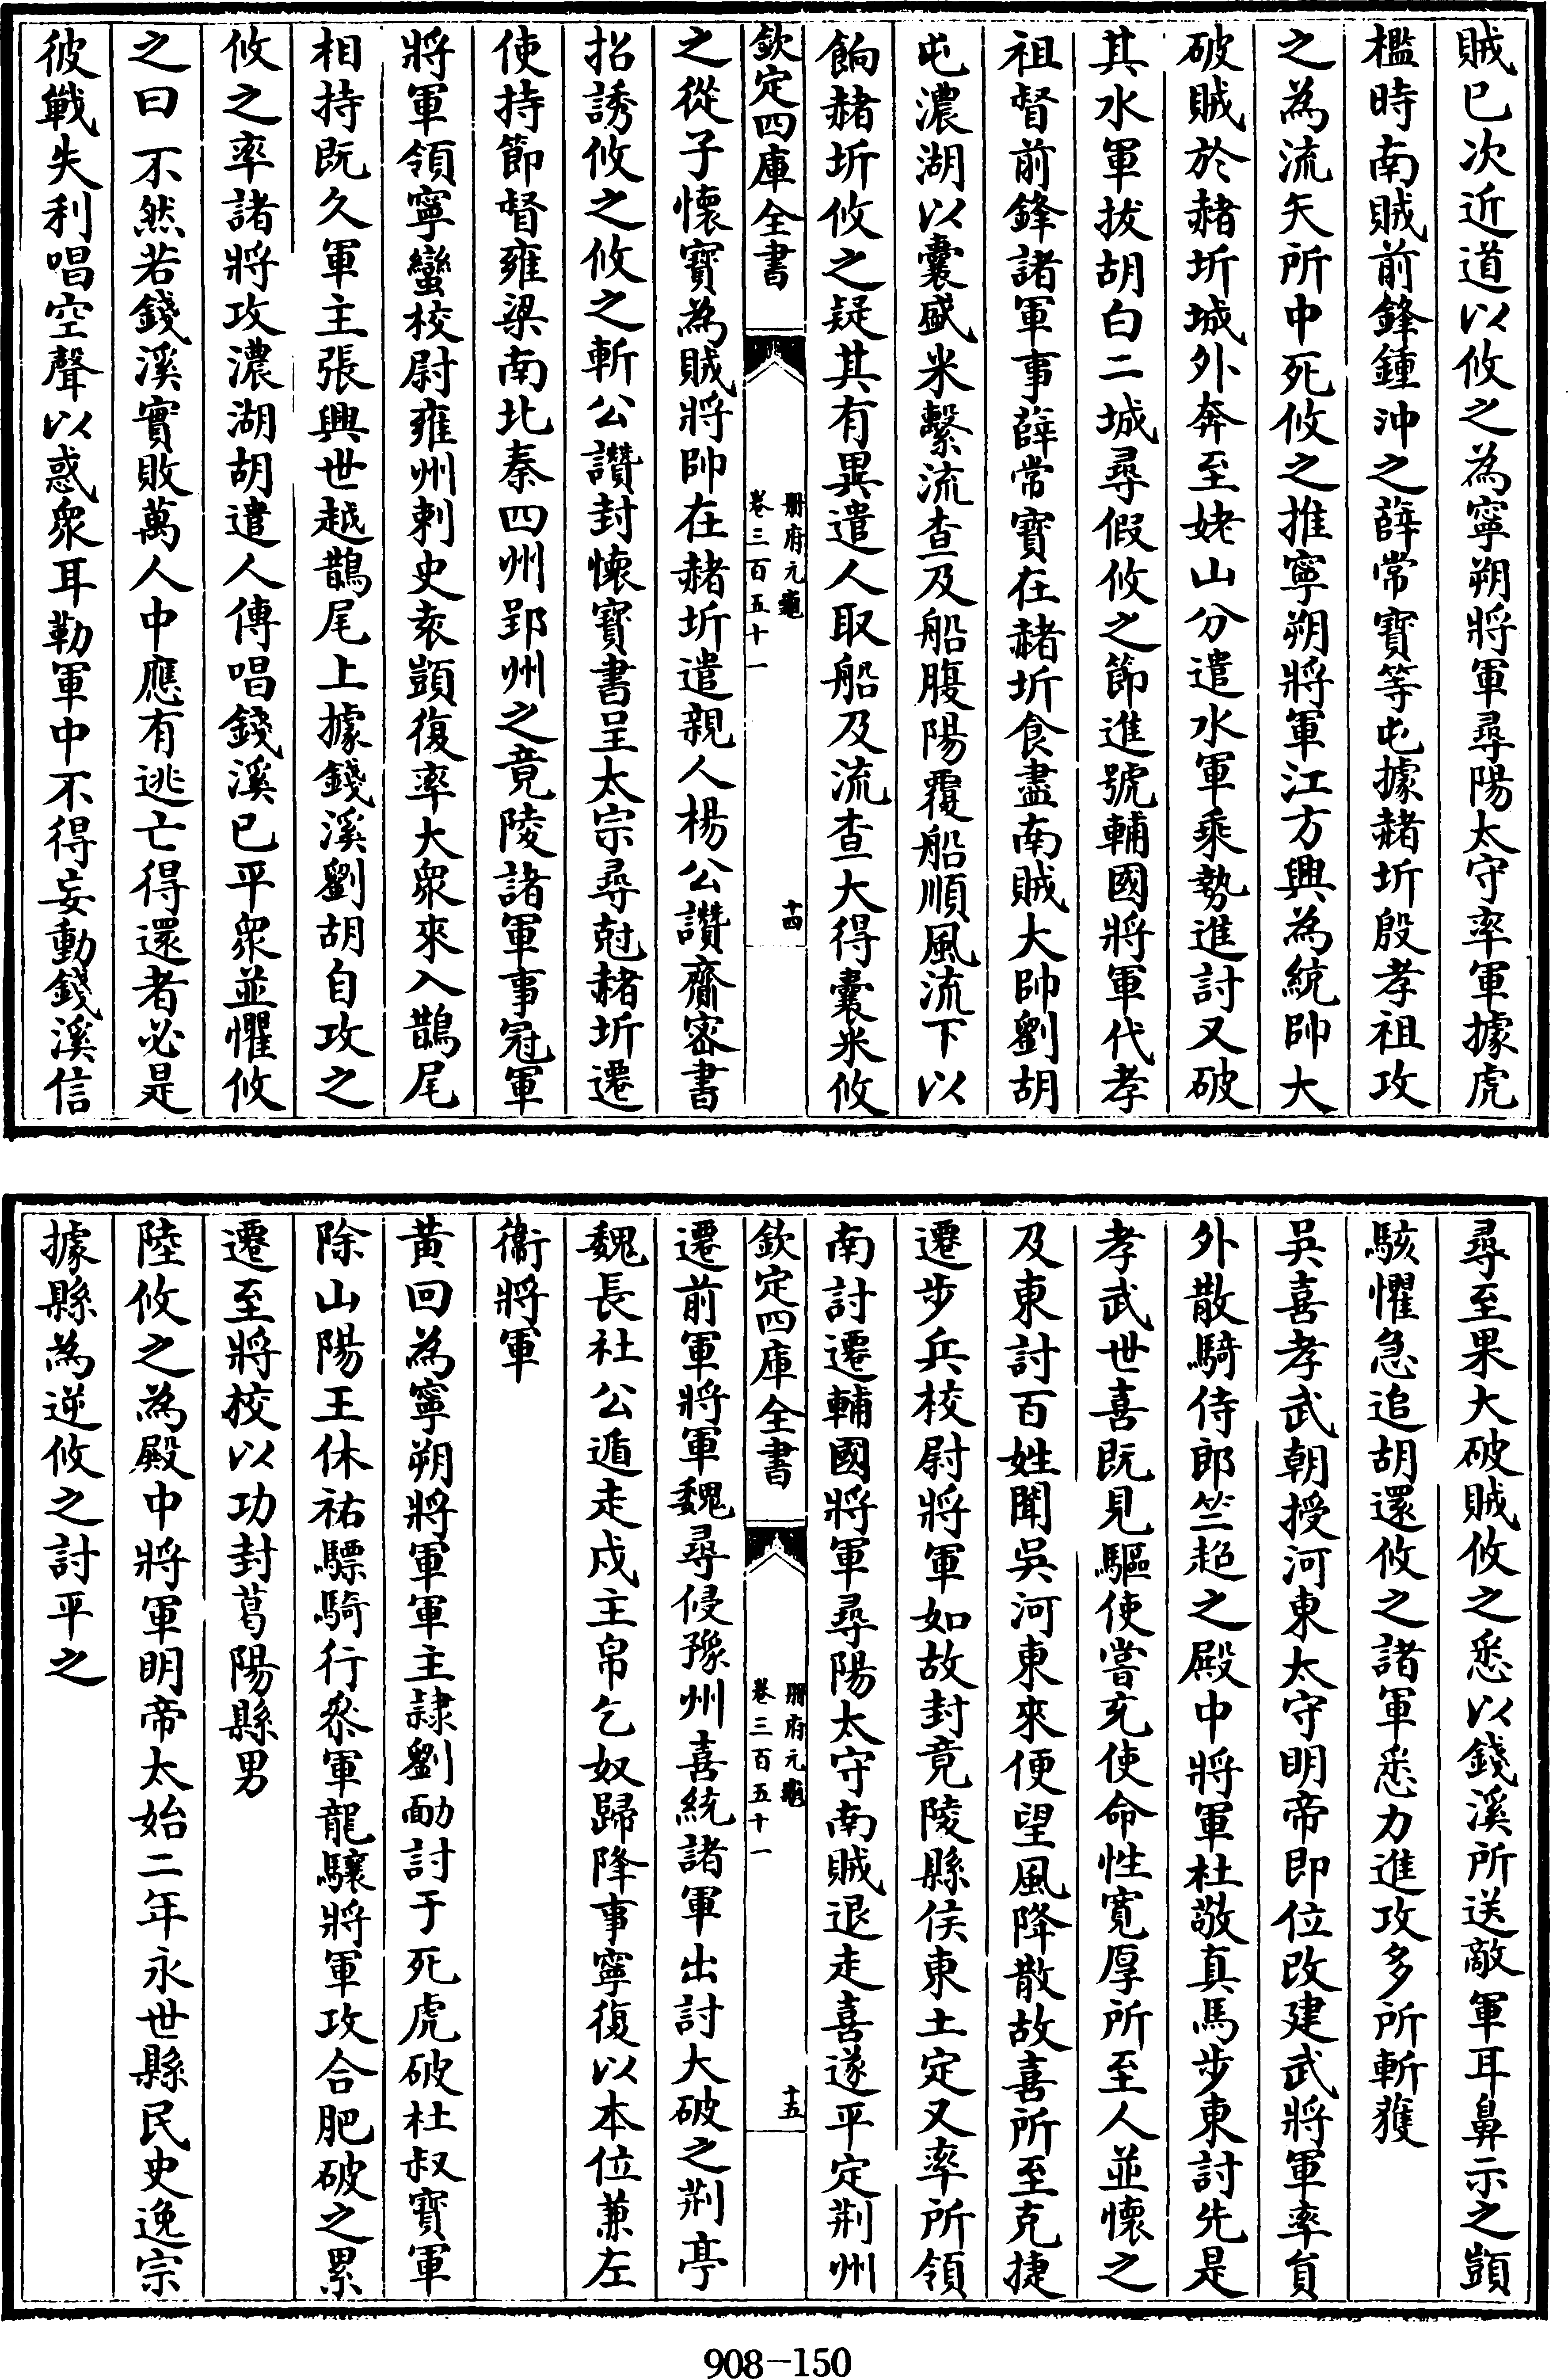 賊已次近道以攸之為寧朔將軍尋陽太守率軍據虎
檻時南賊前鋒鍾沖之薛常寶等屯據赭圻殷孝祖攻
之為流矢所中死攸之推寧朔將軍江方興為統帥大
破賊於赭圻城外奔至姥山分遣水軍乘勢進討又破
其水軍拔胡白二城尋假攸之節進號輔國將軍代孝
祖督前鋒諸軍事薛常寶在赭圻食盡南賊大帥劉胡
屯濃湖以囊盛米繫流查及船腹陽覆船順風流下以
餉赭圻攸之疑其有異遣人取船及流查大得囊米攸
欽定四庫全書
冊府元龜
卷三百五十一
十四
之從子懷寶為賊將帥在赭圻遣親人楊公讚齎密書
招誘攸之攸之斬公讚封懷寶書呈太宗尋尅赭圻遷
使持節督雍梁南北秦四州郢州之竟陵諸軍事冠軍
將軍領寧蠻校尉雍州刺史袁顗復率大眾來入鵲尾
相持既久軍主張興世越鵲尾上據錢溪劉胡自攻之
攸之率諸將攻濃湖胡遣人傳唱錢溪已平眾並懼攸
之曰不然若錢溪實敗萬人中應有逃亡得還者必是
彼戰失利唱空聲以惑眾耳勒軍中不得妄動錢溪信
尋至果大破賊攸之悉以錢溪所送敵軍耳鼻示之顗
駭懼急追胡還攸之諸軍悉力進攻多所斬獲
吳喜孝武朝授河東太守明帝即位改建武將軍率員
外散騎侍郎竺超之殿中將軍杜敬真馬步東討先是
孝武世喜既見驅使嘗充使命性寬厚所至人並懷之
及東討百姓聞吳河東來便望風降散故喜所至克捷
遷步兵校尉將軍如故封竟陵縣侯東土定又率所領
南討遷輔國將軍尋陽太守南賊退走喜遂平定荆州
欽定四庫全書
冊府元龜
卷三百五十一
十五
遷前軍將軍魏尋侵豫州喜統諸軍出討大破之荆亭
魏長社公遁走戍主帛乞奴歸降事寧復以本位兼左
衞將軍
黃回為寧朔將軍軍主隷劉勔討于死虎破杜叔寶軍
除山陽王休祐驃騎行叅軍龍驤將軍攻合肥破之累
遷至將校以功封葛陽縣男
陸攸之為殿中將軍明帝太始二年永世縣民史逸宗
據縣為逆攸之討平之
908-150